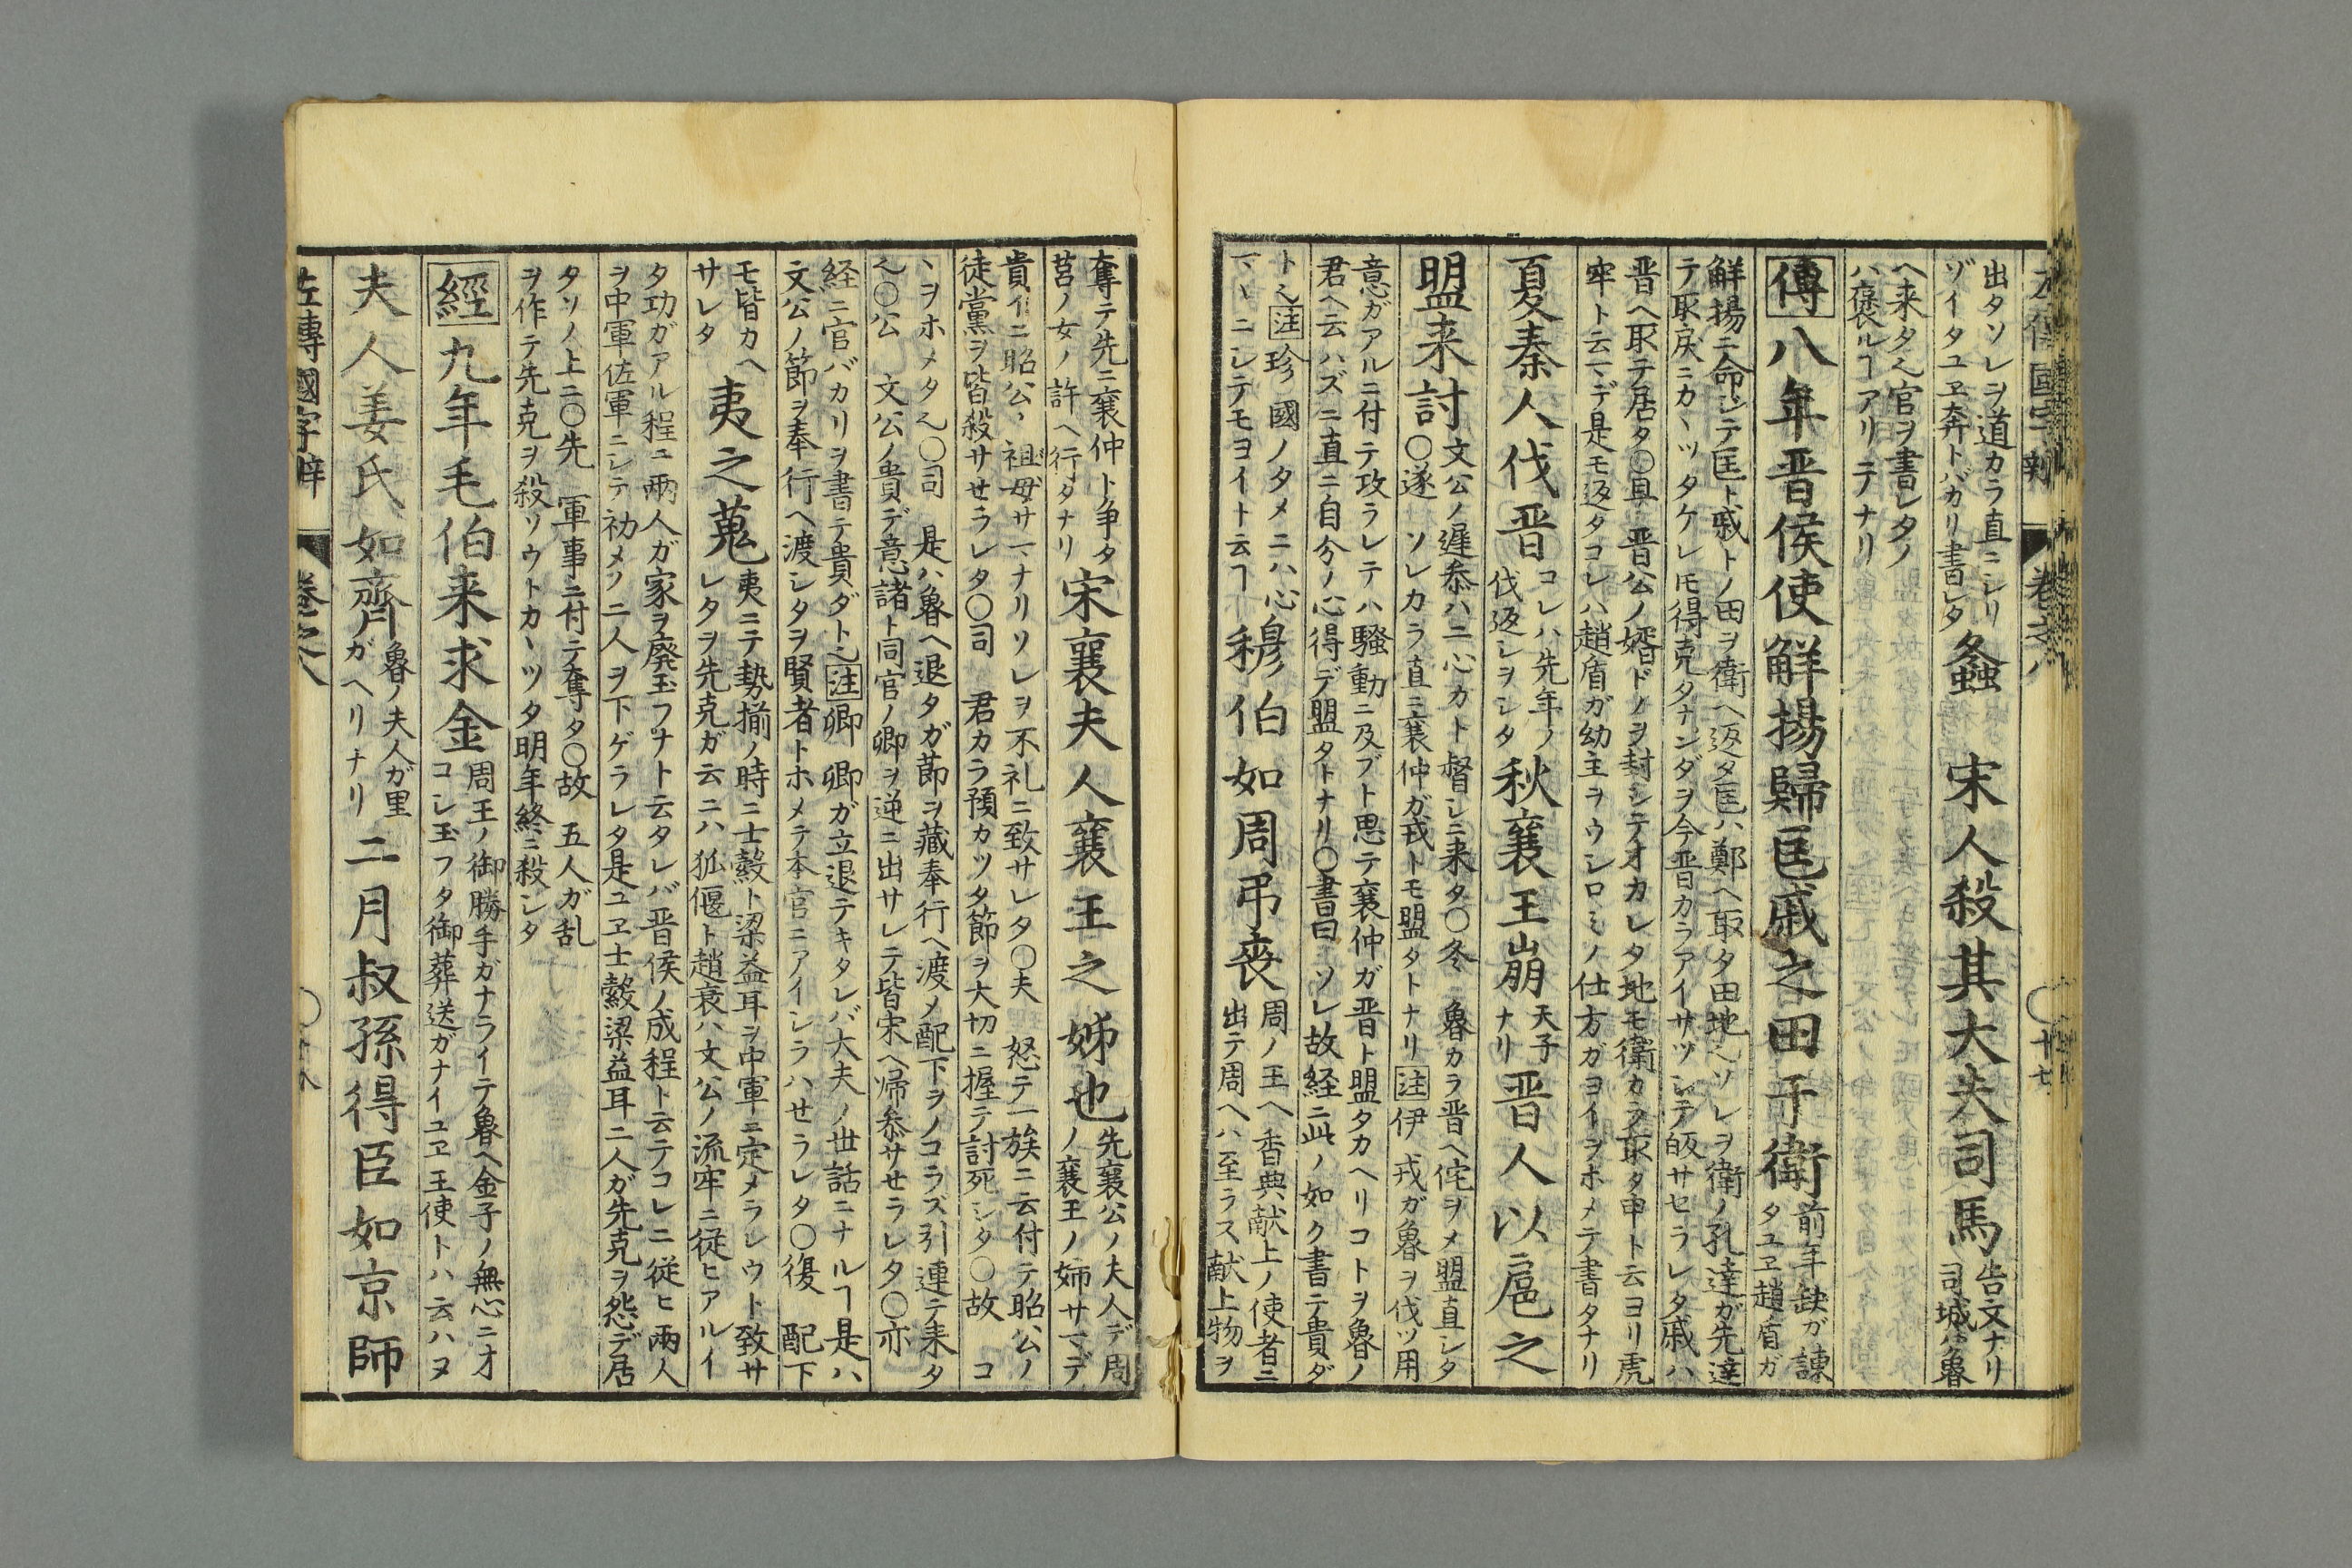 左傳國字辯 卷之八 〇十七
出タソレヲ道カラ直ニシリ
ゾイタユヱ奔トバカリ書レタ
螽 宋人殺其大夫司馬
告文ナリ
司城ハ魯
ヘ来タ〆官ヲ書レタノ
ハ褒ルヿアリテナリ
傳八年晋侯使解揚歸匡戚之田于衛
前年缺ガ諌
タユヱ趙盾ガ
解揚ニ命ジテ匡ト戚トノ田ヲ衛ヘ返タ匡ハ鄭ヘ取タ田地〆ソレヲ衛ノ孔達ガ先達
テ取戻ニカヽツタケレ𪜈得克タナンダヲ今晋カラアイサツシテ皈サセラレタ戚ハ
晋ヘ取テ居タ〇且 晋公ノ婿ドノヲ封シテオカレタ地モ衛カラ取タ申ト云ヨリ虎
牢ト云マデ是モ返タコレハ趙盾ガ幼主ヲウシロミノ仕方ガヨイヲホメテ書タナリ
夏秦人伐晋
コレハ先年ノ
伐返シヲシタ
秋襄王崩
天子
ナリ
晋人以扈之
盟来討
文公ノ遅参ハ二心カト督シニ来タ〇冬 魯カラ晋ヘ侘ヲメ盟直シタ
〇遂 ソレカラ直ニ襄仲ガ戎トモ盟タトナリ注伊 戎ガ魯ヲ伐ツ用
意ガアルニ付テ攻ラレテハ騒動ニ及ブト思テ襄仲ガ晋ト盟タカヘリコトヲ魯ノ
君ヘ云ハズニ直ニ自分ノ心得デ盟タトナリ〇書曰 ソレ故経ニ此ノ如ク書テ貴ダ
ト〆注珍 國ノタメニハ心
マヽニシテモヨイト云ヿ
穆伯如周弔喪
周ノ王ヘ香典献上ノ使者ニ
出テ周ヘハ至ラス献上物ヲ
奪テ先ニ襄仲ト争タ
莒ノ女ノ許ヘ行タナリ
宋襄夫人襄王之姊也
先襄公ノ夫人デ周
ノ襄王ノ姉サマデ
貴イニ昭公ハ祖母サマナリソレヲ不礼ニ致サレタ〇夫 怒テ一族ニ云付テ昭公ノ
徒黨ヲ皆殺サセラレタ〇司 君カラ預カツタ節ヲ大切ニ握テ討死シタ〇故 コ
ヽヲホメタ〆〇司 是ハ魯ヘ退タガ節ヲ藏奉行ヘ渡メ配下ヲノコラズ引連テ来タ
〆〇公 文公ノ貴デ意諸ト同官ノ卿ヲ逆ニ出サレテ皆宋ヘ帰参サセラレタ〇亦
経ニ官バカリヲ書テ貴ダト〆注卿 卿ガ立退テキタレバ大夫ノ世話ニナルヿ是ハ
文公ノ節ヲ奉行ヘ渡シタヲ賢者トホメテ本官ニアイシラハセラレタ〇復 配下
モ皆カヘ
サレタ
夷之蒐
夷ニテ勢揃ノ時ニ士縠ト梁益耳ヲ中軍ニ定メラレウト致サ
レタヲ先克ガ云ニハ狐偃ト趙衰ハ文公ノ流牢ニ従ヒアルイ
タ功ガアル程ニ両人ガ家ヲ廃玉フナト云タレバ晋侯ノ成程ト云テコレニ従ヒ両人
ヲ中軍佐軍ニシテ初メノ二人ヲ下ゲラレタ是ユヱ士縠梁益耳二人ガ先克ヲ怨デ居
タソノ上ニ〇先 軍事ニ付テ奪タ〇故 五人ガ乱
ヲ作テ先克ヲ殺ソウトカヽツタ明年終ニ殺シタ
經九年毛伯来求金
周王ノ御勝手ガナライテ魯ヘ金子ノ無心ニオ
コシ玉フタ御葬送ガナイユヱ王使トハ云ハヌ
夫人姜氏如齊
魯ノ夫人ガ里
ガヘリナリ
二月叔孫得臣如京師
左傳國字辯 卷之八